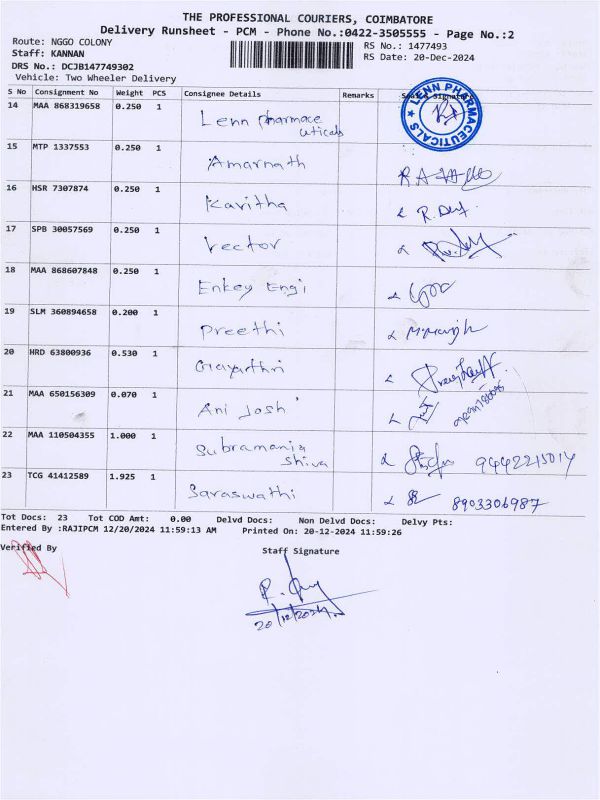 THE PROFESSIONAL COURIERS, COIMBATORE
Delivery Runsheet - PCM - Phone No.:0422-3505555 - Page No.:2
Route: NGGO COLONY
RS No.: 1477493
Staff: KANNAN
RS Date: 20-Dec-2024
DRS No.: DCJB147749302
Vehicle: Two Wheeler Delivery
S No Consignment No Weight PCS Consignee Details Remarks
LENN PHARMACEUTICALS
14 MAA 868319658 0.250 1 Lenn Pharmace
uticals
15 MTP 1337553 0.250 1 Amarnath
16 HSR 7307874 0.250 1 Kavitha
17 SPB 30057569 0.250 1 Vector
18 MAA 868607848 0.250 1 Enkey Engi
19 SLM 360894658 0.200 1 Preethi
20 HRD 63800936 0.530 1 Gayathri
21 MAA 650156309 0.070 1 Ani Josh
22 MAA 110504355 1.000 1 Subramania
Shiva
9442215014
23 TCG 41412589 1.925 1 Saraswathi 8903306987
Tot Docs: 23 Tot COD Amt: 0.00 Delvd Docs: Non Delvd Docs: Delvy Pts:
Entered By :RAJIPCM 12/20/2024 11:59:13 AM Printed On: 20-12-2024 11:59:26
Verified By
Staff Signature
20/12/2024